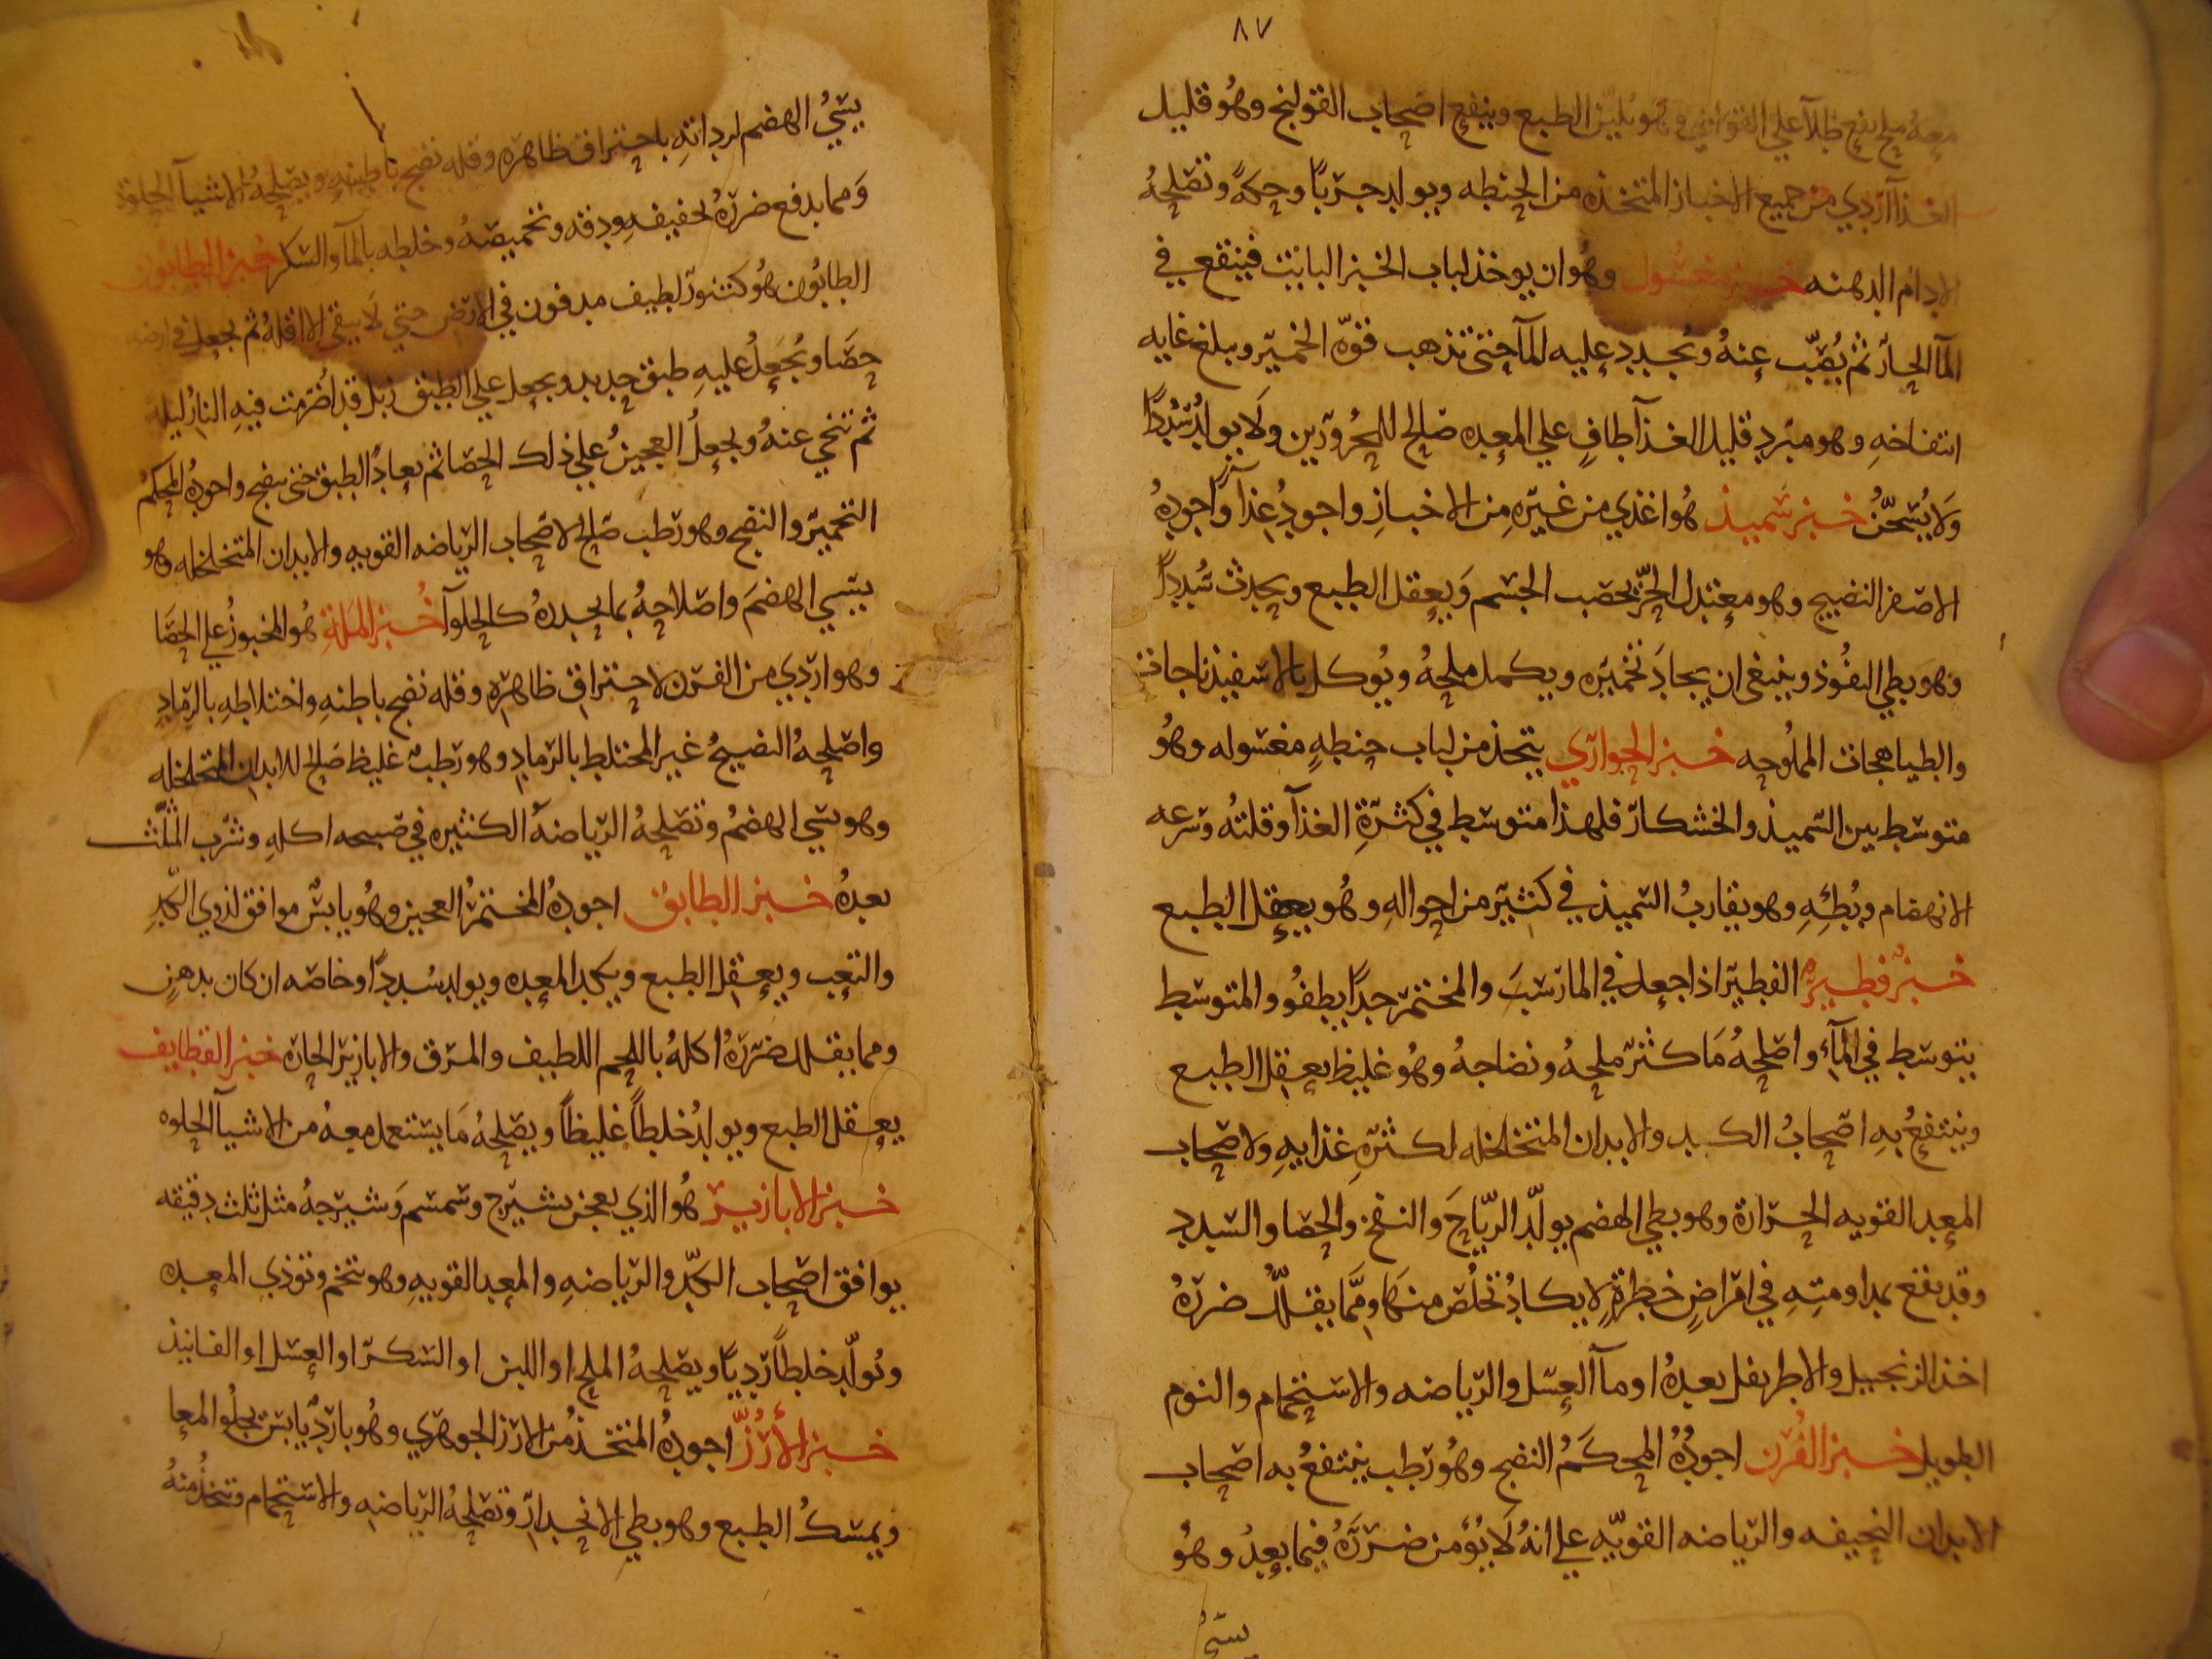 ٨٧
معه ملح نفع طلاً علي القوابي وهو يليّن الطبع وينفع اصحاب القولنج وهُو قليل
الغذآ اردي من جميع الاخباز المتخذه من الحنطه ويولد جربًا وحِكةً وتصلحهُ
الادام الدهنه خبز مغسُول وهُو ان يوخذ لباب الخبز البايت فينقع في
المآ الحارّ ثم يُصَبّ عنهُ ويُجدد عليه المآ حتى تذهب قوّة الخميّر ويبلغ غايه
انتفاخهِ وهو مبرد قليل الغذآ طافٍ علي المعده صَالح للمحرُورين ولا يولدُ سُدَدًا
ولا يُسَخّنُ خبز سَميذ هُوا غذي من غيّرهِ مِن الاخبازِ واجودُ غذآءً واجودهُ
الاصفر النضيج وهو معتدل الحرّ يخصب الجسم وَيعقل الطبع ويحدث سُددًا
وهو بطي النفُوذ وينبغى ان يجادَ تخميّره ويكمل ملحهُ ويُوكل بالاسفيذناجات
والطياهجات المملُوحِه خبز الحواري يتخذ من لباب حنطهٍ مغسوله وهُو
متوسط بين السّميذ والخشكار فلهذا متوسط في كثرةِ الغذآ وقلتهُ وسرعه
الانهضام وبُطئِهِ وهو يقاربُ السّميذ في كثيّر من احوالهِ وهُو يعقل الطبع
خبزٌ فطيرٌ الفطيّر اذا جعل في المآ رَسَبَ والمختمر جدًا يطفُو والمتوسط
يتوسط في المآءِ واصلحهُ مَا كثر ملحهُ ونضاجهُ وهُو غليظ يعقل الطبع
وينتفعُ بهِ اصحابُ الكد والابدان المتخلخله لكثرةِ غذايهِ ولاصحاب
المعد القويه الحرارة وهو بطي الهضم يولّد الرّياحَ والنفخ والحصا والسدد
وقد يقع بمداومتهِ في امراضٍ خطِرةٍ لا يكادُ تخلُص منهَا ومِمَّا يقلّلُ ضررهُ
اخذ الزنجبيل والاطريفل بعدهُ او مآ العسَل والرّياضه والاستحمام والنوم
الطويل خبز الفُرن اجودُهُ المحكَمُ النضج وهُو رَطب ينتفعُ به اصحاب
الابدان النحيفه والرّياضه القويّه علي انهُ لَا يُؤمن ضرَرَّهُ فيما بعدُ وهُو
يسَيُ
يسَيُ الهضم لرداتهِ باحتراق ظاهرّه وقله نضج باطنهِ ويصلحهُ الاشيآ الحلوة
وَمما يدفع ضررهُ تجفيفهِ ودقه وتحميصهُ وخلطه بالمآ والسكر خبز الطابُون
الطابُون هُو كتنور لطيف مدفون في الارض حتي لا يبقي الا اقلهُ ثم يجعل في ارضه
حصًا ويُجعلُ عليهِ طبق حديد ويجعل علي الطبق زبل قد اُضرمت فيهِ النارُ ليله
ثم تنحي عنهُ ويجعلُ العجينُ علي ذلك الحصا ثم يعادُ الطبق حتى ينضج واجودهُ المحكمُ
التخميّر والنضج وهو رَطب صَالح لاصحاب الرّياضه القويه والابدان المتخلخله وهو
يسي الهضمَ واصلاحهُ بما يحدرهُ كالحلوآ خُبز المَلةِ هُو المخبوزُ علي الحصَا
وهو اردي من الفرن لاحتراق ظاهرّهِ وقله نضج باطنهِ واختلاطهِ بالرّمادِ
واصلحهُ النضيجُ غير المختلط بالرّمادِ وهو رَطبٌ غليظ صَالح للابدان المتخلخله
وهو يسي الهضمُ وتصلحهُ الرّياضهُ الكثيره في صبيحه اكلهِ وشرب المثلّث
بعدهُ خبز الطابق اجودهُ المختمرُ العجين وهُو يابسٌ موافق لذوي الكدِ
والتعب ويعقل الطبع ويكدُ المعده ويولد سُددًا وخاصه ان كان بدهنٍ
ومما يقلل ضررهُ اكلهُ باللحم اللطيف والمرق والابازيّر الحارّه خبز القطايف
يعقل الطبع ويولدُ خلطًا غليظًا ويصلحهُ مَا يستعمل معهُ من الاشيآ الحلوه
خبز الابازير هُو الذي يعجن بشيرج وسمسم وَشيرجهُ مثل ثلث دقيقه
يوافق اصحاب الكدّ والرّياضهِ والمعد القويهِ وهو يتخم وتؤذي المعده
ويُولّد خلطًا رَديًا ويصلحهُ الملح او اللبن او السكر او العسل او الفانيذ
خبز الأرُزّ اجودُهُ المتخذُ من الارز الجوهري وهُو باردٌ يابس يجلُو المعا
ويمسكُ الطبع وهو بطي الانحدار وتصلحهُ الرّياضهِ والاستحمام وتتخذُ منهُ